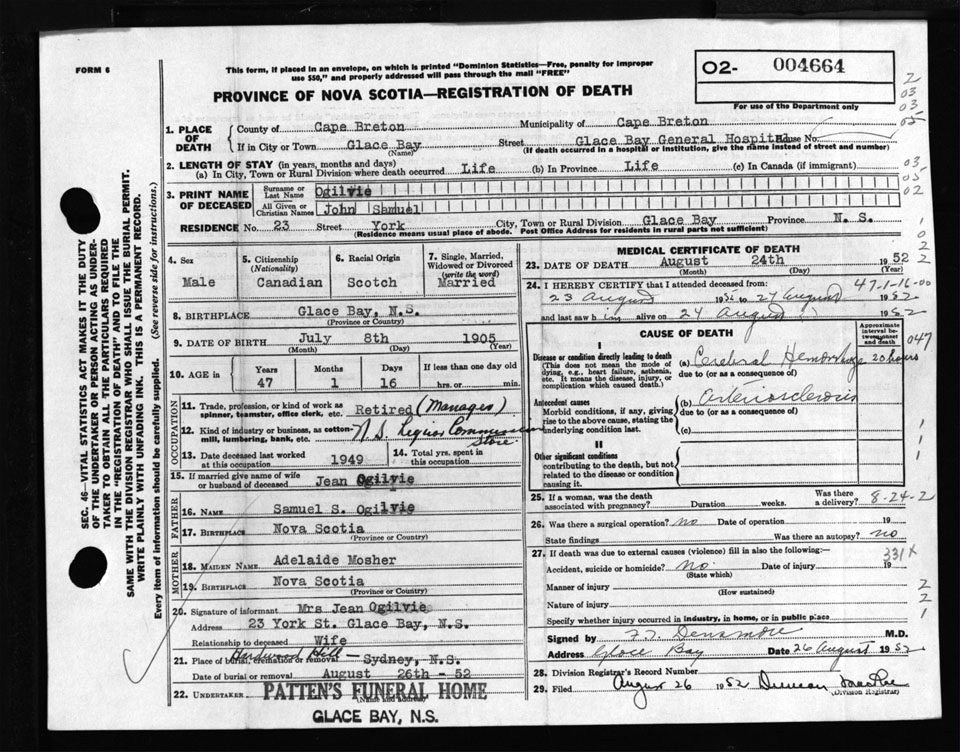 FORM 6
This form, if placed in an envelope, on which is printed "Dominion Statistics—Free, penalty for improper
use $50," and properly addressed will pass through the mail "FREE"
PROVINCE OF NOVA SCOTIA—REGISTRATION OF DEATH
O2- 004664
For use of the Department only
2
03
03
05
03
05
02
1
0
2
2
SEC. 46—VITAL STATISTICS ACT MAKES IT THE DUTY
OF THE UNDERTAKER OR PERSON ACTING AS UNDER-
TAKER TO OBTAIN ALL THE PARTICULARS REQUIRED
IN THE "REGISTRATION OF DEATH" AND TO FILE THE
SAME WITH THE DIVISION REGISTRAR WHO SHALL ISSUE THE BURIAL PERMIT.
WRITE PLAINLY WITH UNFADING INK. THIS IS A PERMANENT RECORD.
Every item of information should be carefully supplied. (See reverse side for instructions.)
1. PLACE OF DEATH
County of Cape Breton Municipality of Cape Breton
If in City or Town Glace Bay Street Glace Bay General Hospital House No.
(Name) (If death occurred in a hospital or institution, give the name instead of street and number)
2. LENGTH OF STAY (in years, months and days)
(a) In City, Town or Rural Division where death occurred Life (b) In Province Life (c) In Canada (if immigrant)
3. PRINT NAME OF DECEASED
Surname or Last Name Ogilvie
All Given or Christian Names John Samuel
RESIDENCE No. 23 Street York City, Town or Rural Division Glace Bay Province N. S.
(Residence means usual place of abode. Post Office Address for residents in rural parts not sufficient)
4. Sex
Male
5. Citizenship
(Nationality)
Canadian
6. Racial Origin
Scotch
7. Single, Married,
Widowed or Divorced
(write the word)
Married
8. BIRTHPLACE Glace Bay, N.S.
(Province or Country)
9. DATE OF BIRTH July 8th 1905
(Month) (Day) (Year)
10. AGE in Years Months Days If less than one day old
47 1 16 hrs. or min.
OCCUPATION
11. Trade, profession, or kind of work as
spinner, teamster, office clerk, etc. Retired (Manager)
12. Kind of industry or business, as cotton-
mill, lumbering, bank, etc. N.S. Liquor Commission
Store
13. Date deceased last worked
at this occupation 1949
14. Total yrs. spent in
this occupation
15. If married give name of wife
or husband of deceased Jean Ogilvie
FATHER
16. NAME Samuel S. Ogilvie
17. BIRTHPLACE Nova Scotia
(Province or Country)
MOTHER
18. MAIDEN NAME Adelaide Mosher
19. BIRTHPLACE Nova Scotia
(Province or Country)
20. Signature of informant Mrs Jean Ogilvie
Address 23 York St. Glace Bay, N.S.
Relationship to deceased Wife
21. Place of burial, cremation or removal Hardwood Hill — Sydney, N.S.
Date of burial or removal August 26th - 52
22. UNDERTAKER PATTEN'S FUNERAL HOME
(Name and address)
GLACE BAY, N.S.
MEDICAL CERTIFICATE OF DEATH
23. DATE OF DEATH August 24th 1952
(Month) (Day) (Year)
24. I HEREBY CERTIFY that I attended deceased from: 47-1-16-00
23 August 1952 to 24 August 1952
and last saw him alive on 24 August 1952
CAUSE OF DEATH
Approximate
interval be-
tween onset
and death
047
I
Disease or condition directly leading to death
(This does not mean the mode of
dying, e.g., heart failure, asthenia,
etc. It means the disease, injury, or
complication which caused death.)
(a) Cerebral Hemorrhage 20 hours
due to (or as a consequence of)
Antecedent causes
Morbid conditions, if any, giving
rise to the above cause, stating the
underlying condition last.
(b) Arteriosclerosis
due to (or as a consequence of)
(c)
II
Other significant conditions
contributing to the death, but not
related to the disease or condition
causing it.
1
1
1
25. If a woman, was the death
associated with pregnancy? Duration weeks. Was there
a delivery? 8-24-2
26. Was there a surgical operation? no Date of operation 19
State findings Was there an autopsy? no
27. If death was due to external causes (violence) fill in also the following: 331X
Accident, suicide or homicide? no. Date of injury 19
(State which)
Manner of injury 2
(How sustained)
Nature of injury 2
Specify whether injury occurred in industry, in home, or in public place 1
Signed by F.T. Densmore M.D.
Address Glace Bay Date 26 August 1952
28. Division Registrar's Record Number
29. Filed August 26 1952 Duncan MacRae
(Division Registrar)